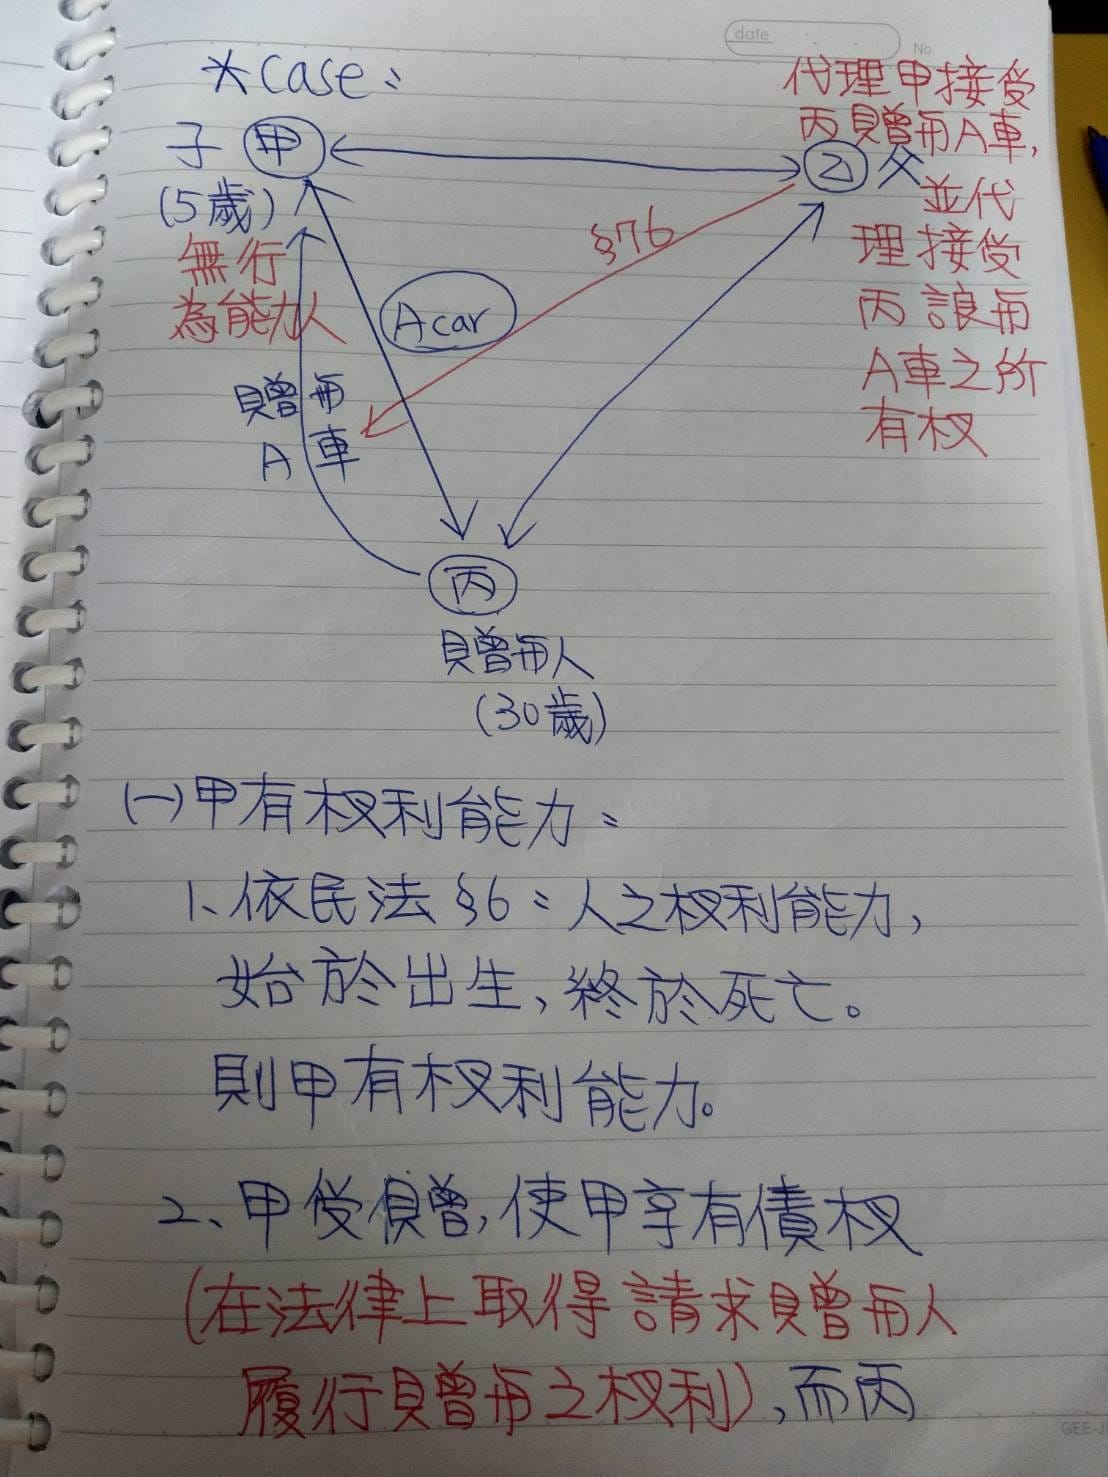 date
No.
*case:
子 甲
(5歲)
無行
為能力人
乙 父
代理甲接受
丙贈与A車,
並代
理接受
丙讓与
A車之所
有权
§76
A car
贈与
A 車
丙
贈与人
(30歲)
(一)甲有权利能力:
1、依民法§6:人之权利能力,
始於出生,終於死亡。
則甲有权利能力。
2、甲受贈,使甲享有債权
(在法律上取得請求贈与人
履行贈与之权利),而丙